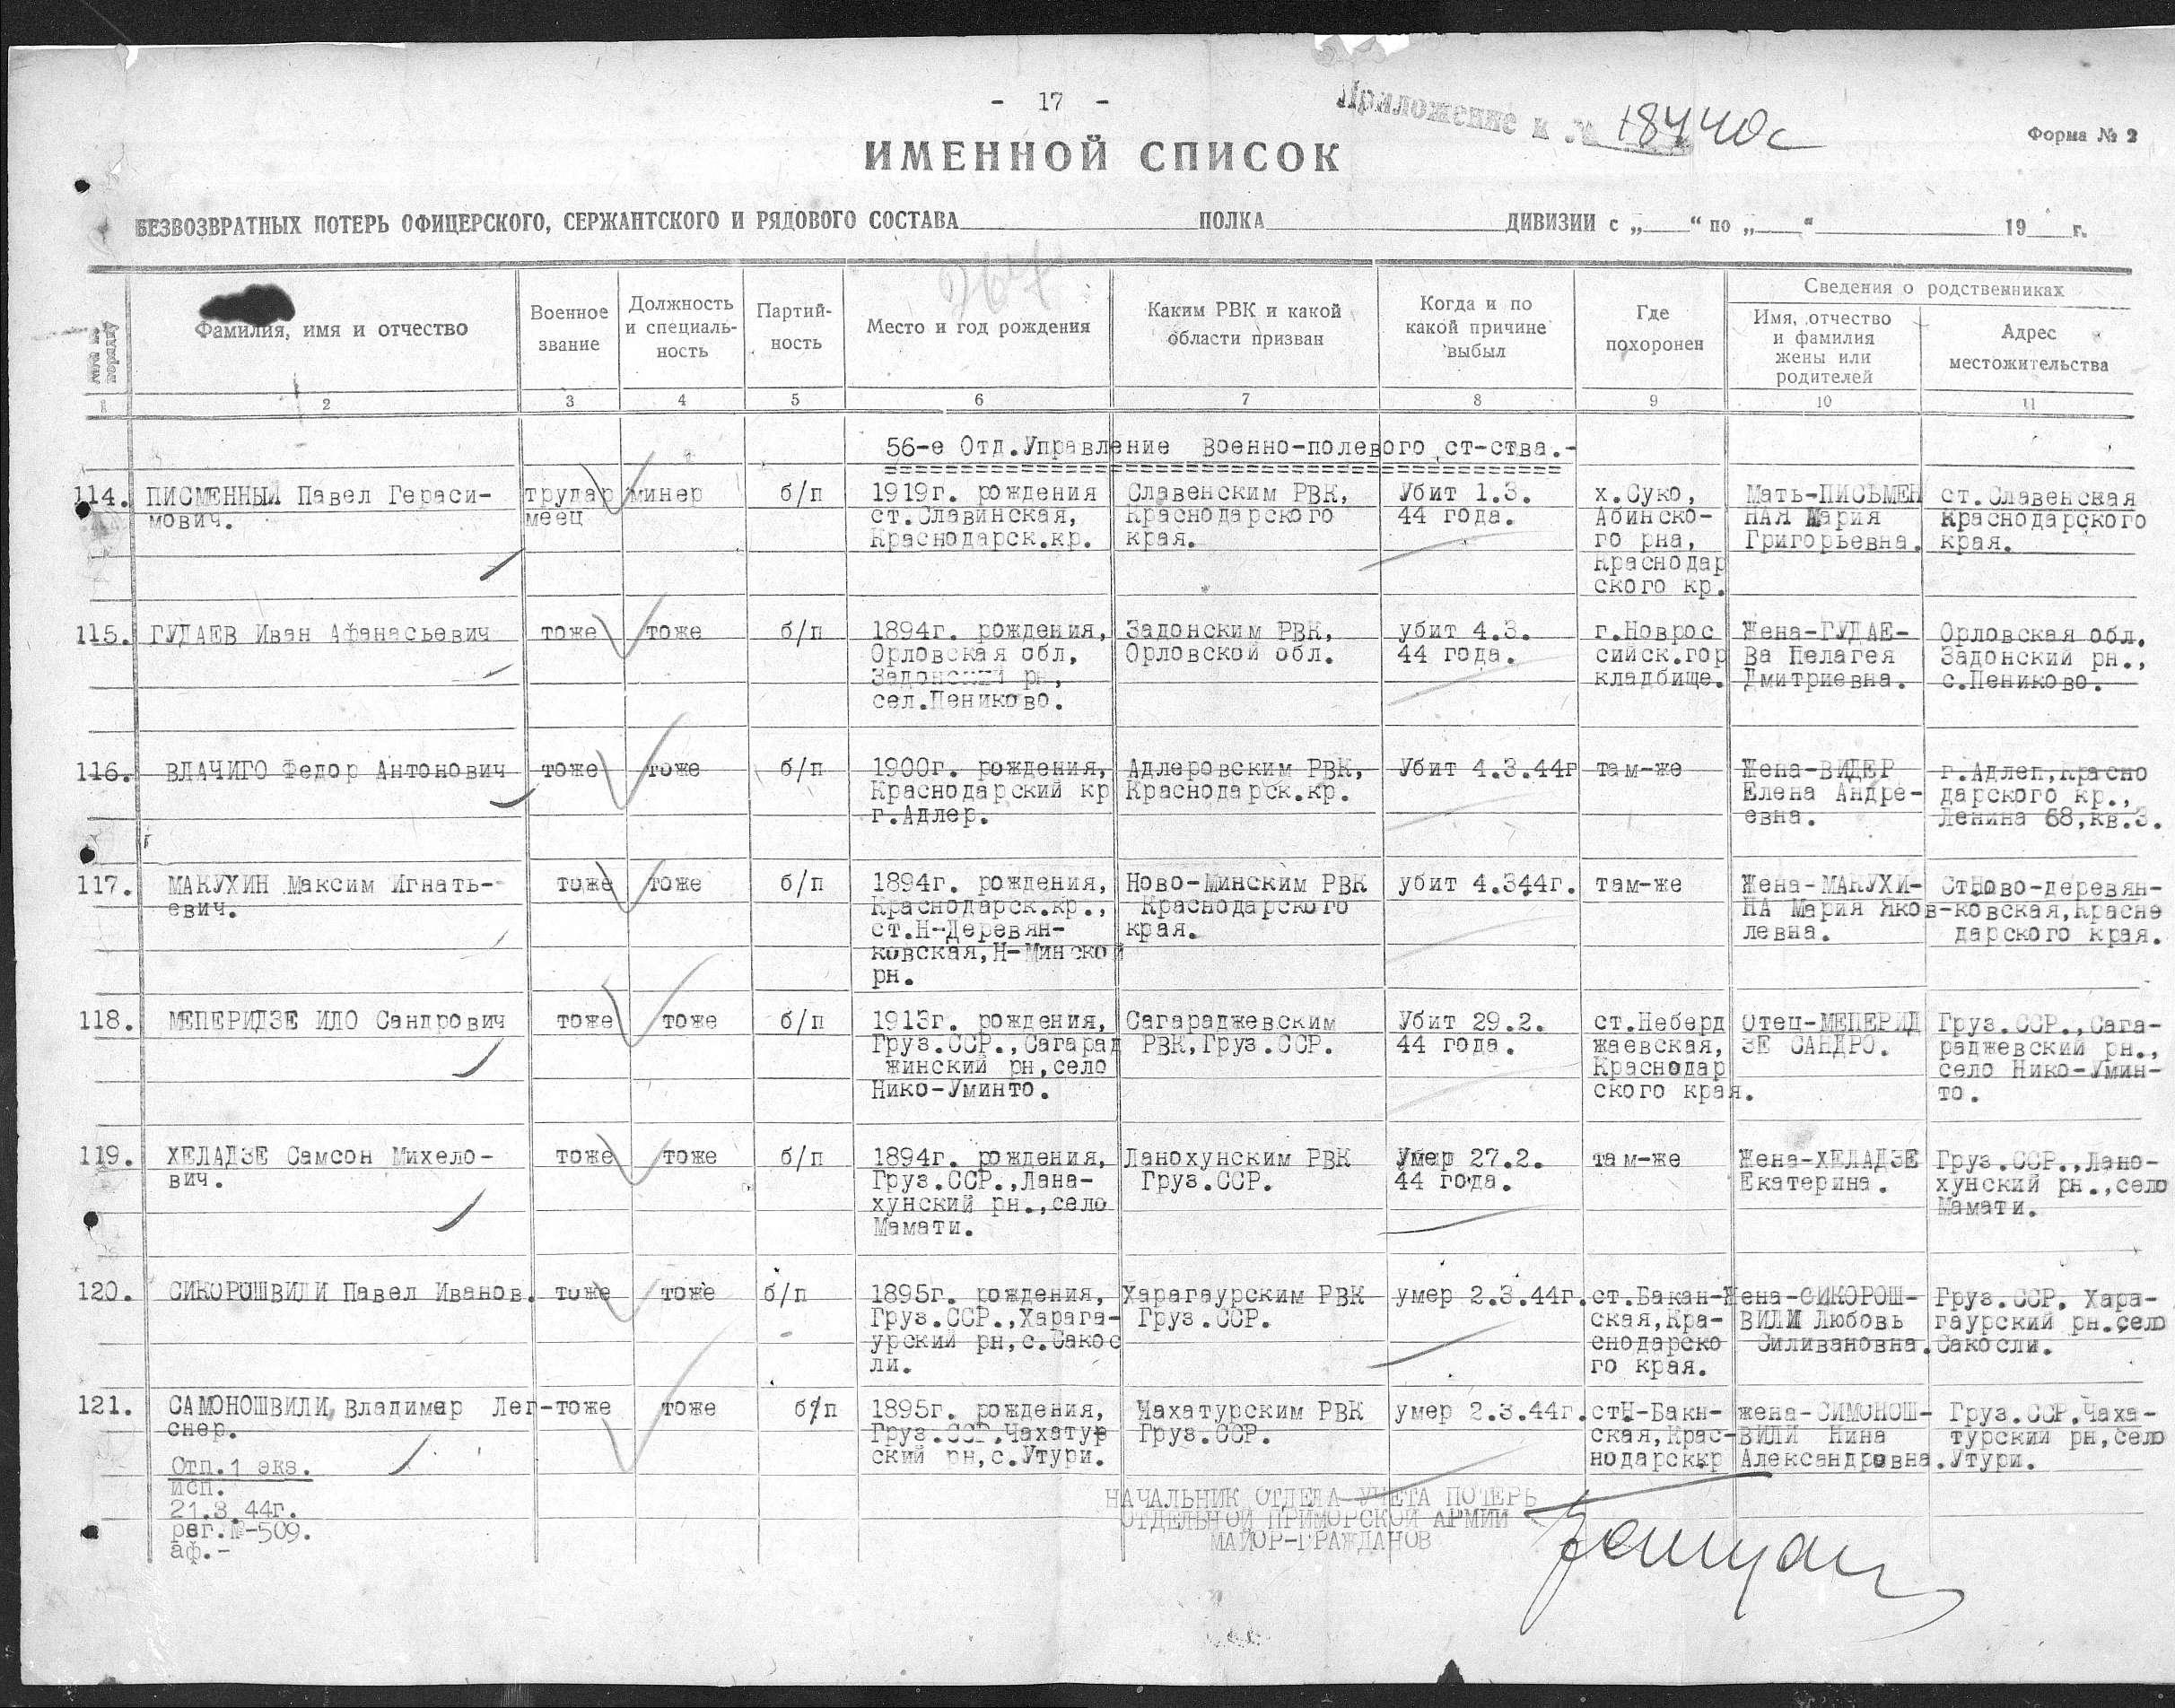 - 17 -
Приложение к № 18440с
Форма № 2
ИМЕННОЙ СПИСОК
БЕЗВОЗВРАТНЫХ ПОТЕРЬ ОФИЦЕРСКОГО, СЕРЖАНТСКОГО И РЯДОВОГО СОСТАВА ПОЛКА ДИВИЗИИ с „ “ по „ “ 19 г.
Фамилия, имя и отчество
Военное звание
Должность и специаль-ность
Партий-ность
Место и год рождения
Каким РВК и какой области призван
Когда и по какой причине выбыл
Где похоронен
Сведения о родственниках
Имя, отчество и фамилия жены или родителей
Адрес местожительства
1 2 3 4 5 6 7 8 9 10 11
56-е Отд.Управление Военно-полевого ст-ства.-
114. ПИСМЕННЫЙ Павел Гераси- трудар минер б/п 1919г. рождения Славенским РВК, Убит 1.3. х.Суко, Мать-ПИСЬМЕН ст.Славенская
мович. меец ст.Славинская, Краснодарского 44 года. Абинско- НАЯ Мария Краснодарского
Краснодарск.кр. края. го рна, Григорьевна. края.
Краснодар
ского кр.
115. ГУДАЕВ Иван Афанасьевич тоже тоже б/п 1894г. рождения, Задонским РВК, убит 4.3. г.Новрос Жена-ГУДАЕ- Орловская обл.
Орловская обл, Орловской обл. 44 года. сийск.гор Ва Пелагея Задонский рн.,
Задонский рн, кладбище. Дмитриевна. с.Пениково.
сел.Пениково.
116. ВДАЧИГО Федор Антонович тоже тоже б/п 1900г. рождения, Адлеровским РВК, Убит 4.3.44г там-же Жена-ВИДЕР г.Адлер,Красно
Краснодарский кр Краснодарск.кр. Елена Андре- дарского кр.,
г.Адлер. евна. Ленина 68,кв.3.
117. МАКУХИН Максим Игнать- тоже тоже б/п 1894г. рождения, Ново-Минским РВК убит 4.344г. там-же Жена-МАКУХИ- СтНово-деревян-
евич. Краснодарск.кр., Краснодарского НА Мария Яков-ковская,Красно
ст.Н-Деревян- края. левна. дарского края.
ковская,Н-Минской
рн.
118. МЕПЕРИДЗЕ ИЛО Сандрович тоже тоже б/п 1913г. рождения, Сагараджевским Убит 29.2. ст.Неберд Отец-МЕПЕРИД Груз.ССР.,Сага-
Груз.ССР.,Сагарад РВК,Груз.ССР. 44 года. жаевская, ЗЕ САНДРО. раджевский рн.,
жинский рн,село Краснодар село Нико-Умин-
Нико-Уминто. ского края. то.
119. ХЕЛАДЗЕ Самсон Михело- тоже тоже б/п 1894г. рождения, Ланохунским РВК Умер 27.2. там-же Жена-ХЕЛАДЗЕ Груз.ССР.,Лано-
вич. Груз.ССР.,Лана- Груз.ССР. 44 года. Екатерина. хунский рн.,село
хунский рн.,село Мамати.
Мамати.
120. СИКОРОШВИЛИ Павел Иванов. тоже тоже б/п 1895г. рождения, Харагаурским РВК умер 2.3.44г. ст.Бакан- Жена-СИКОРОШ- Груз.ССР. Хара-
Груз.ССР.,Харага- Груз.ССР. ская,Кра- ВИЛИ Любовь гаурский рн.село
урский рн,с.Сакос снодарско Силивановна. Сакосли.
ли. го края.
121. САМОНОШВИЛИ Владимер Лег- тоже тоже б/п 1895г. рождения, Чахатурским РВК умер 2.3.44г. стН-Бакн- жена-СИМОНОШ- Груз.ССР.Чаха-
снер. Груз.ССР.Чахатур Груз.ССР. ская,Крас- ВИЛИ Нина турский рн,село
ский рн,с.Утури. нодарсккр Александровна. Утури.
Отп.1 экз.
исп.
21.3.44г.
рег.№-509.
аф.-
НАЧАЛЬНИК ОТДЕЛА УЧЕТА ПОТЕРЬ
ОТДЕЛЬНОЙ ПРИМОРСКОЙ АРМИИ
МАЙОР-ГРАЖДАНОВ